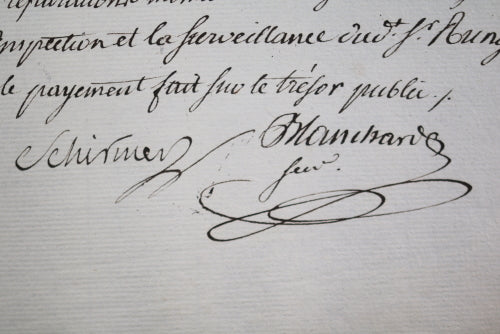 inspection et la surveillance dudt. Sr. Rung
le payement fait sur le trésor public.
Schirmer Blanchard
secr.